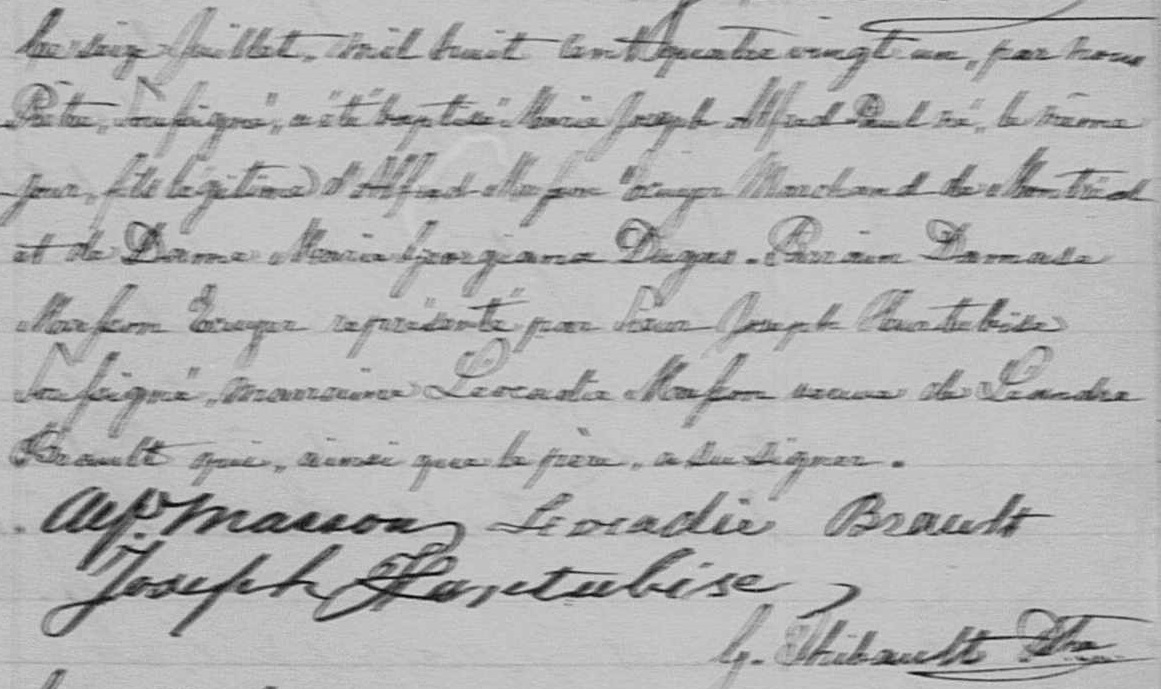 Le seize Juillet, mil huit cent quatre vingt un, par nous
Prêtre, Soussigné, a été baptisé Marie Joseph Alfred Paul né, le même
jour, fils légitime d'Alfred Masson Ecuyer Marchand de Montréal
et de Dame Marie Georgiana Dugas. Parrain Damase
Masson Ecuyer représenté par Sieur Joseph Hurtubise
Soussigné, marraine Leocadie Masson veuve de Léandre
Brault qui, ainsi que le père, a su signer.
Alfd Masson Leocadie Brault
Joseph Hurtubise
G. Thibault Ptre